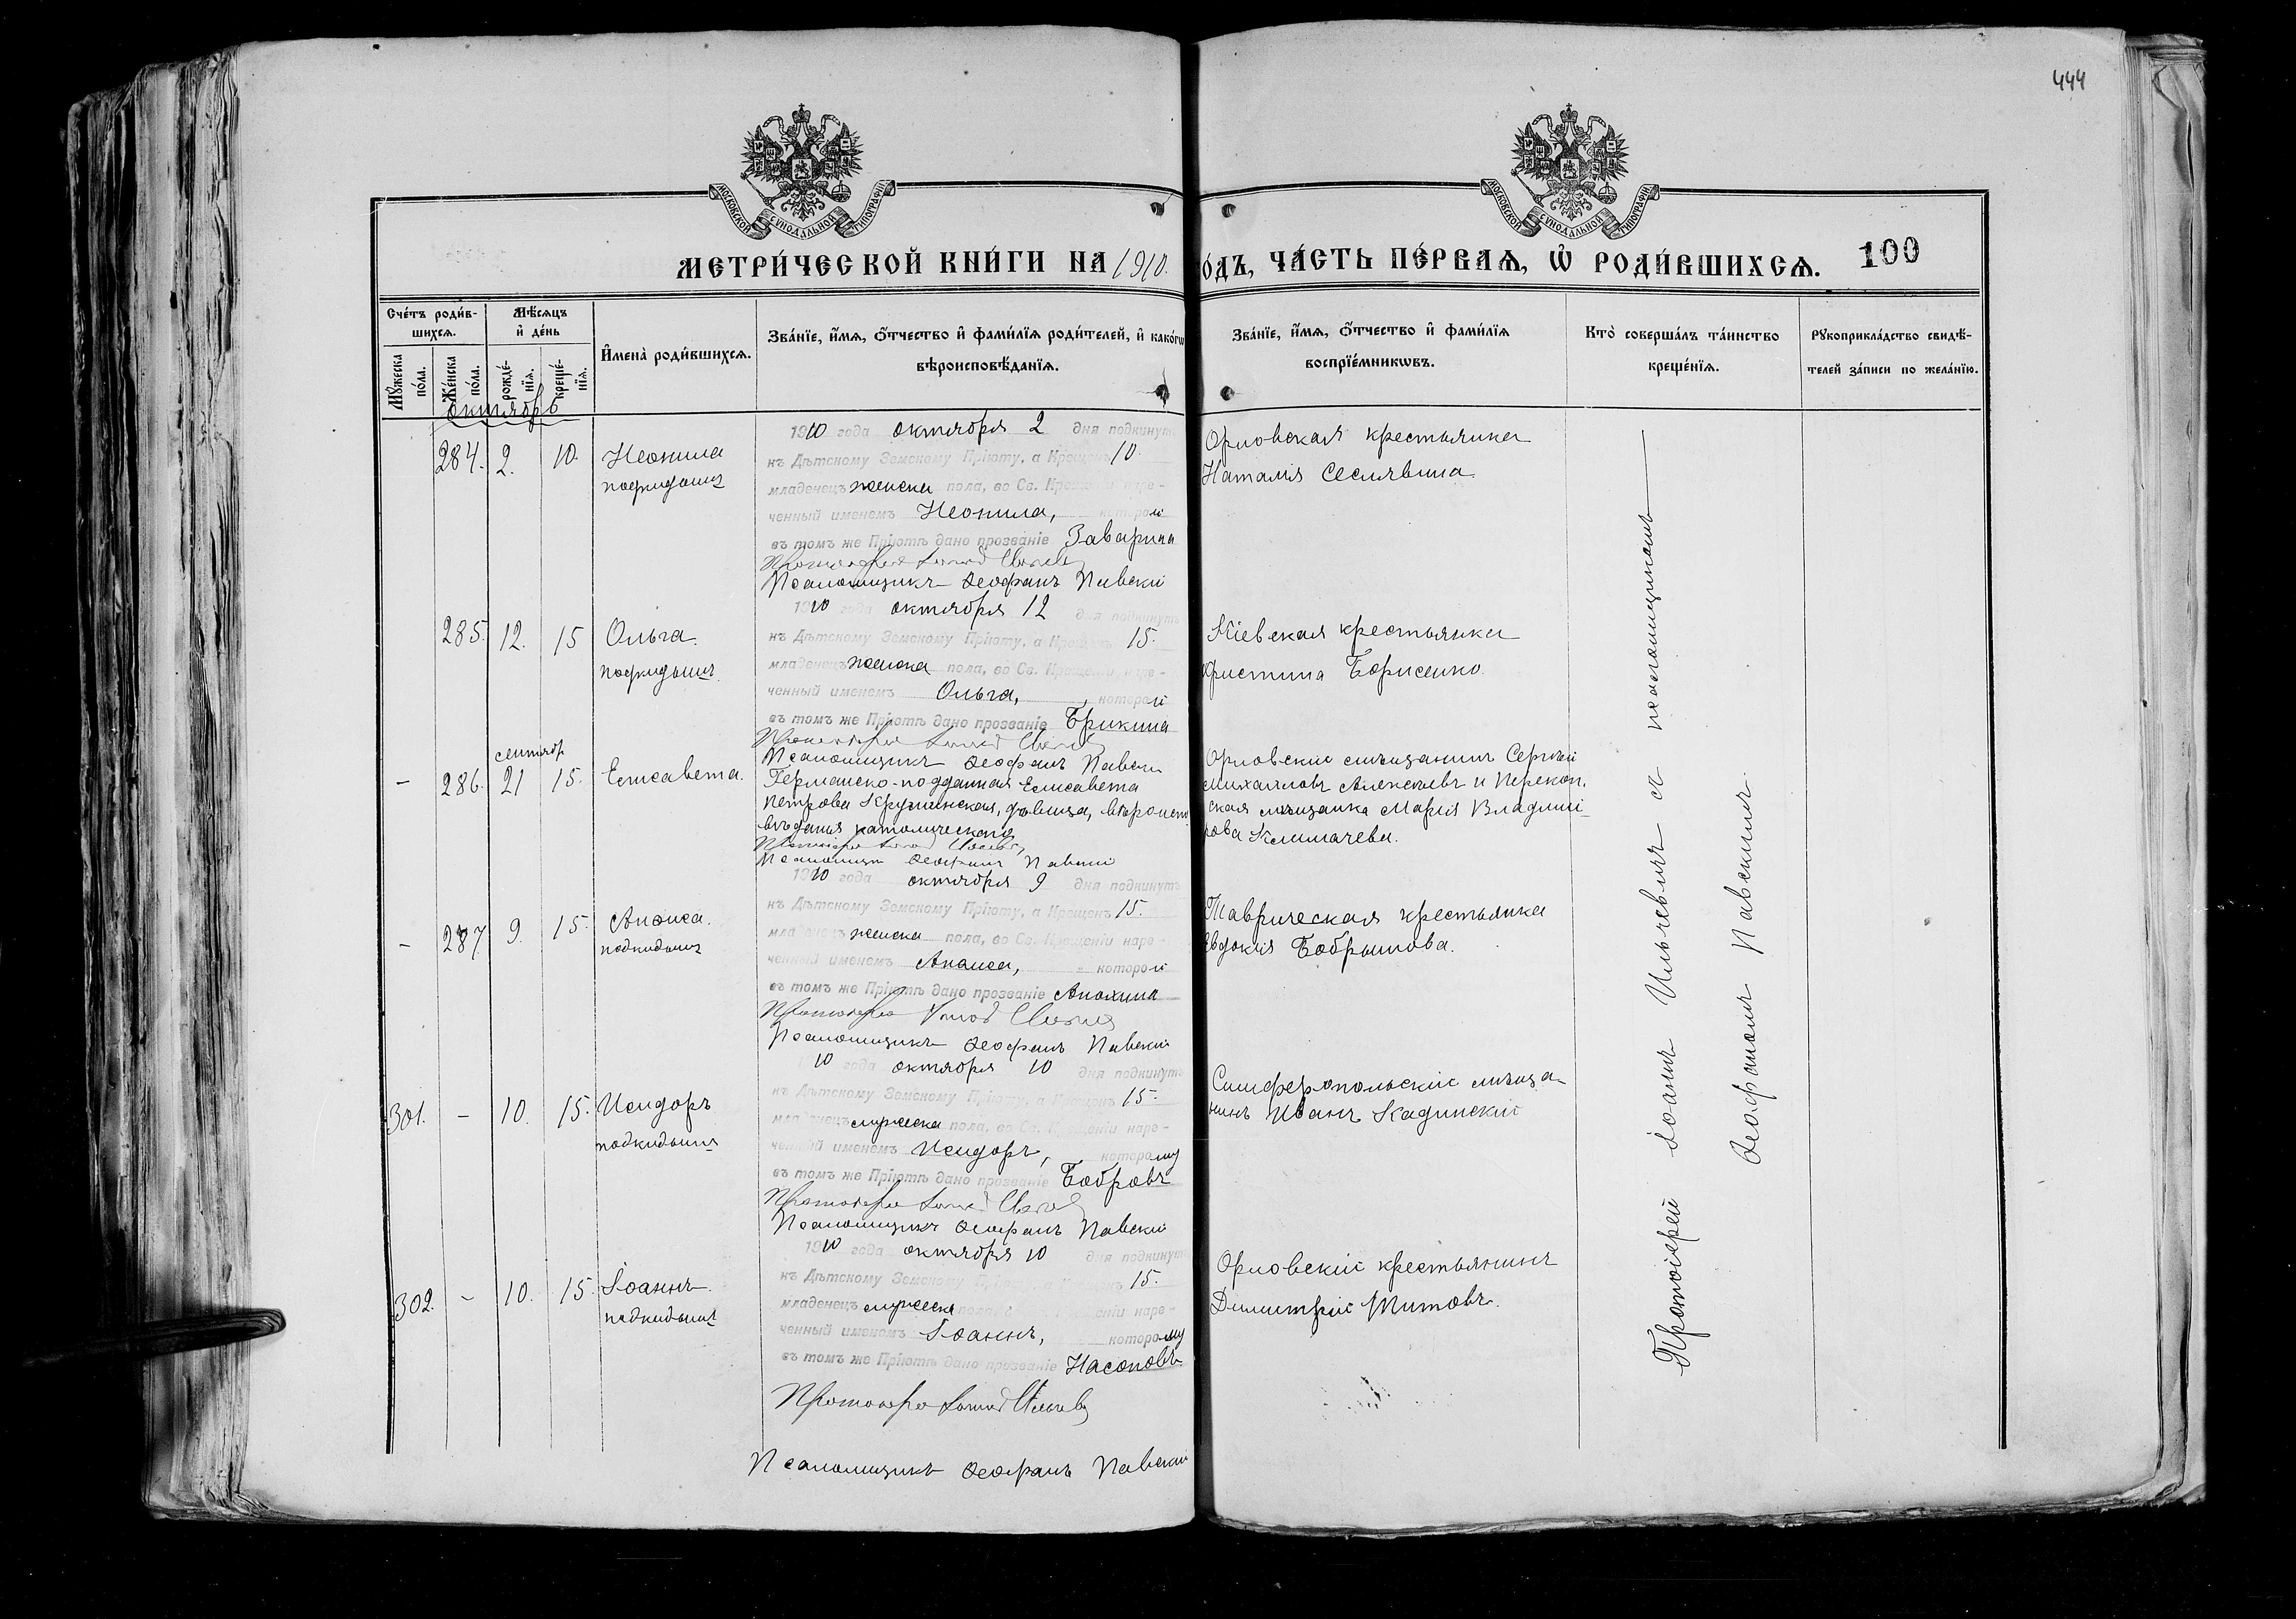 444
МОСКОВСКОЙ СѴНОДАЛЬНОЙ ТИПОГРАФІИ
МОСКОВСКОЙ СѴНОДАЛЬНОЙ ТИПОГРАФІИ
МЕТРИ́ЧЕСКОЙ КНИ́ГИ НА 1910. ОДЪ, ЧА́СТЬ ПЕ́РВАѦ, Ѡ҆ РОДИ́ВШИХСѦ. 100
Сче́тъ роди́в-
шихсѧ.
Мꙋ́жеска по́ла.
Же́нска по́ла.
Мѣ́сѧцъ
и҆ де́нь
рожде́-
нїѧ.
креще́-
нїѧ.
И҆мена̀ роди́вшихсѧ.
Зва́нїе, и҆́мѧ, ѻ҆́тчество и҆ фами́лїѧ роди́телей, и҆ како́гѡ
вѣроисповѣ́данїѧ.
Зва́нїе, и҆́мѧ, ѻ҆́тчество и҆ фами́лїѧ
воспрїе́мникѡвъ.
Кто̀ соверша́лъ та́инство
креще́нїѧ.
Рꙋкоприкла́дство свидѣ́-
телей за́писи по жела́нїю.
октябрь
284. 2. 10. Неонила
подкидышъ
1910 года октября 2 дня подкинутъ
къ Дѣтскому Земскому Пріюту, а Крещенъ 10.
младенецъ женска пола, во Св. Крещеніи наре-
ченный именемъ Неонила, которой
въ томъ же Пріютѣ дано прозваніе Заварина
Протоіерей Іоаннъ Ильчевъ
Псаломщикъ Ѳеофанъ Павскій
Орловская крестьянка
Наталія Сеслявина.
285. 12. 15 Ольга.
подкидышъ.
1910 года октября 12 дня подкинутъ
къ Дѣтскому Земскому Пріюту, а Крещенъ 15.
младенецъ женска пола, во Св. Крещеніи наре-
ченный именемъ Ольга, которой
въ томъ же Пріютѣ дано прозваніе Брикина
Протоіерей Іоаннъ Ильчевъ
Псаломщикъ Ѳеофанъ Павскій
Кіевская крестьянка
Христина Борисенко.
сентябр
– 286. 21 15. Елисавета.
Германско-подданная Елисавета
Петрова дѣвица, вѣроиспо
вѣданія католическаго
Протоіерей Іоаннъ Ильчевъ,
Псаломщикъ Ѳеофанъ Павскій
Орловскій мѣщанинъ Сергѣй
Михайловъ Алексѣевъ и Перекоп.
ская мѣщанка Марія Владимі
рова Климачева.
– 287. 9. 15. Анѳиса.
подкидышъ
1910 года октября 9 дня подкинутъ
къ Дѣтскому Земскому Пріюту, а Крещенъ 15.
младенецъ женска пола, во Св. Крещеніи наре-
ченный именемъ Анѳиса, которой
въ томъ же Пріютѣ дано прозваніе Анохина
Протоіерей Іоаннъ Ильчевъ
Псаломщикъ Ѳеофанъ Павскій
Таврическая крестьянка
Евдокія Бобрышова.
301. – 10. 15. Исидоръ
подкидышъ
10 года октября 10 дня подкинутъ
къ Дѣтскому Земскому Пріюту, а Крещенъ 15.
младенецъ мужеска пола, во Св. Крещеніи наре-
ченный именемъ Исидоръ, которому
въ томъ же Пріютѣ дано прозваніе Бобровъ
Протоіерей Іоаннъ Ильчевъ
Псаломщикъ Ѳеофанъ Павскій
Симферопольскій мѣща-
нинъ Иванъ Кадинскій
302. – 10. 15. Іоаннъ.
подкидышъ
1910 года октября 10 дня подкинутъ
къ Дѣтскому Земскому 15.
младенецъ мужеска наре-
ченный именемъ Іоаннъ, которому
въ томъ же Пріютѣ дано прозваніе Насоновъ.
Протоіерей Іоаннъ Ильчевъ
Псаломщикъ Ѳеофанъ Павскій
Орловскій крестьянинъ
Димитрій Титовъ.
Протоіерей Іоаннъ Ильчевъ съ псаломщикомъ
Ѳеофаномъ Павскимъ.